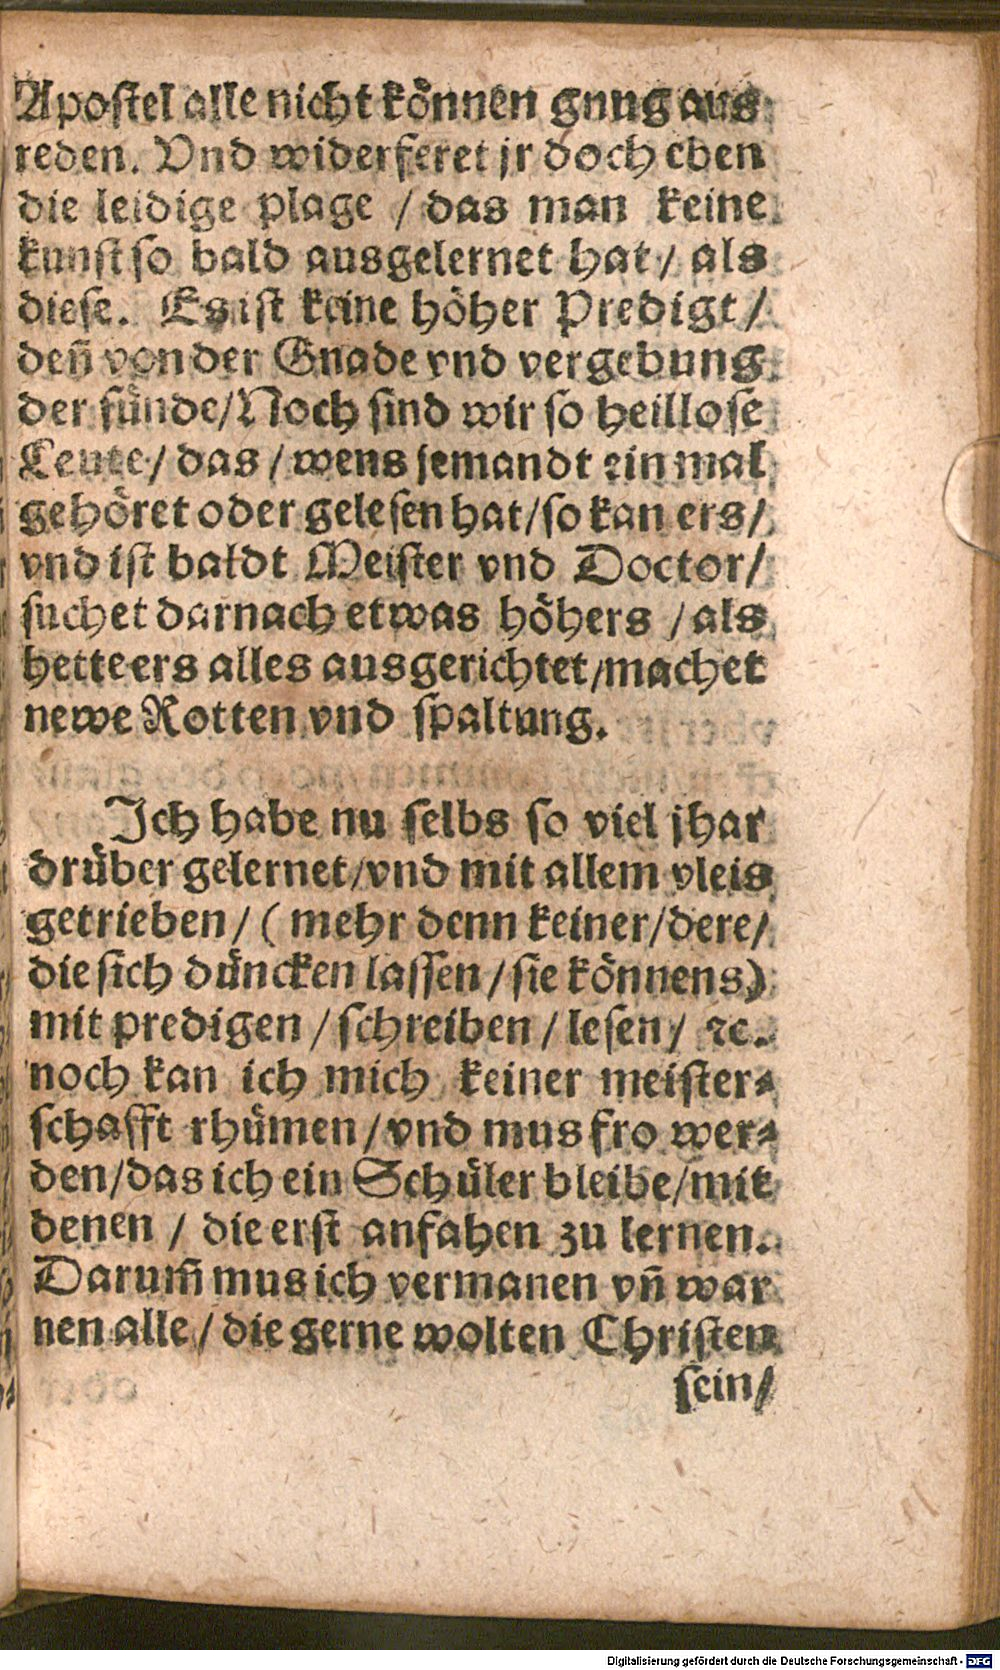 Apostel alle nicht können gnug aus
reden. Vnd widerferet jr doch eben
die leidige plage / das man keine
kunst so bald ausgelernet hat / als
diese. Es ist keine höher Predigt /
deñ von der Gnade vnd vergebung
der sünde / Noch sind wir so heillose
Leute / das / wens jemandt ein mal
gehöret oder gelesen hat / so kan ers /
vnd ist baldt Meister vnd Doctor /
suchet darnach etwas höhers / als
hette ers alles ausgerichtet / machet
newe Rotten vnd spaltung.
Ich habe nu selbs so viel jhar
drüber gelernet / vnd mit allem vleis
getrieben / ( mehr denn keiner / dere /
die sich düncken lassen / sie könnens )
mit predigen / schreiben / lesen / ꝛc.
noch kan ich mich keiner meister⸗
schafft rhümen / vnd mus fro wer⸗
den / das ich ein Schüler bleibe / mit
denen / die erst anfahen zu lernen.
Darum̃ mus ich vermanen vñ war
nen alle / die gerne wolten Christen
sein /
Digitalisierung gefördert durch die Deutsche Forschungsgemeinschaft - DFG